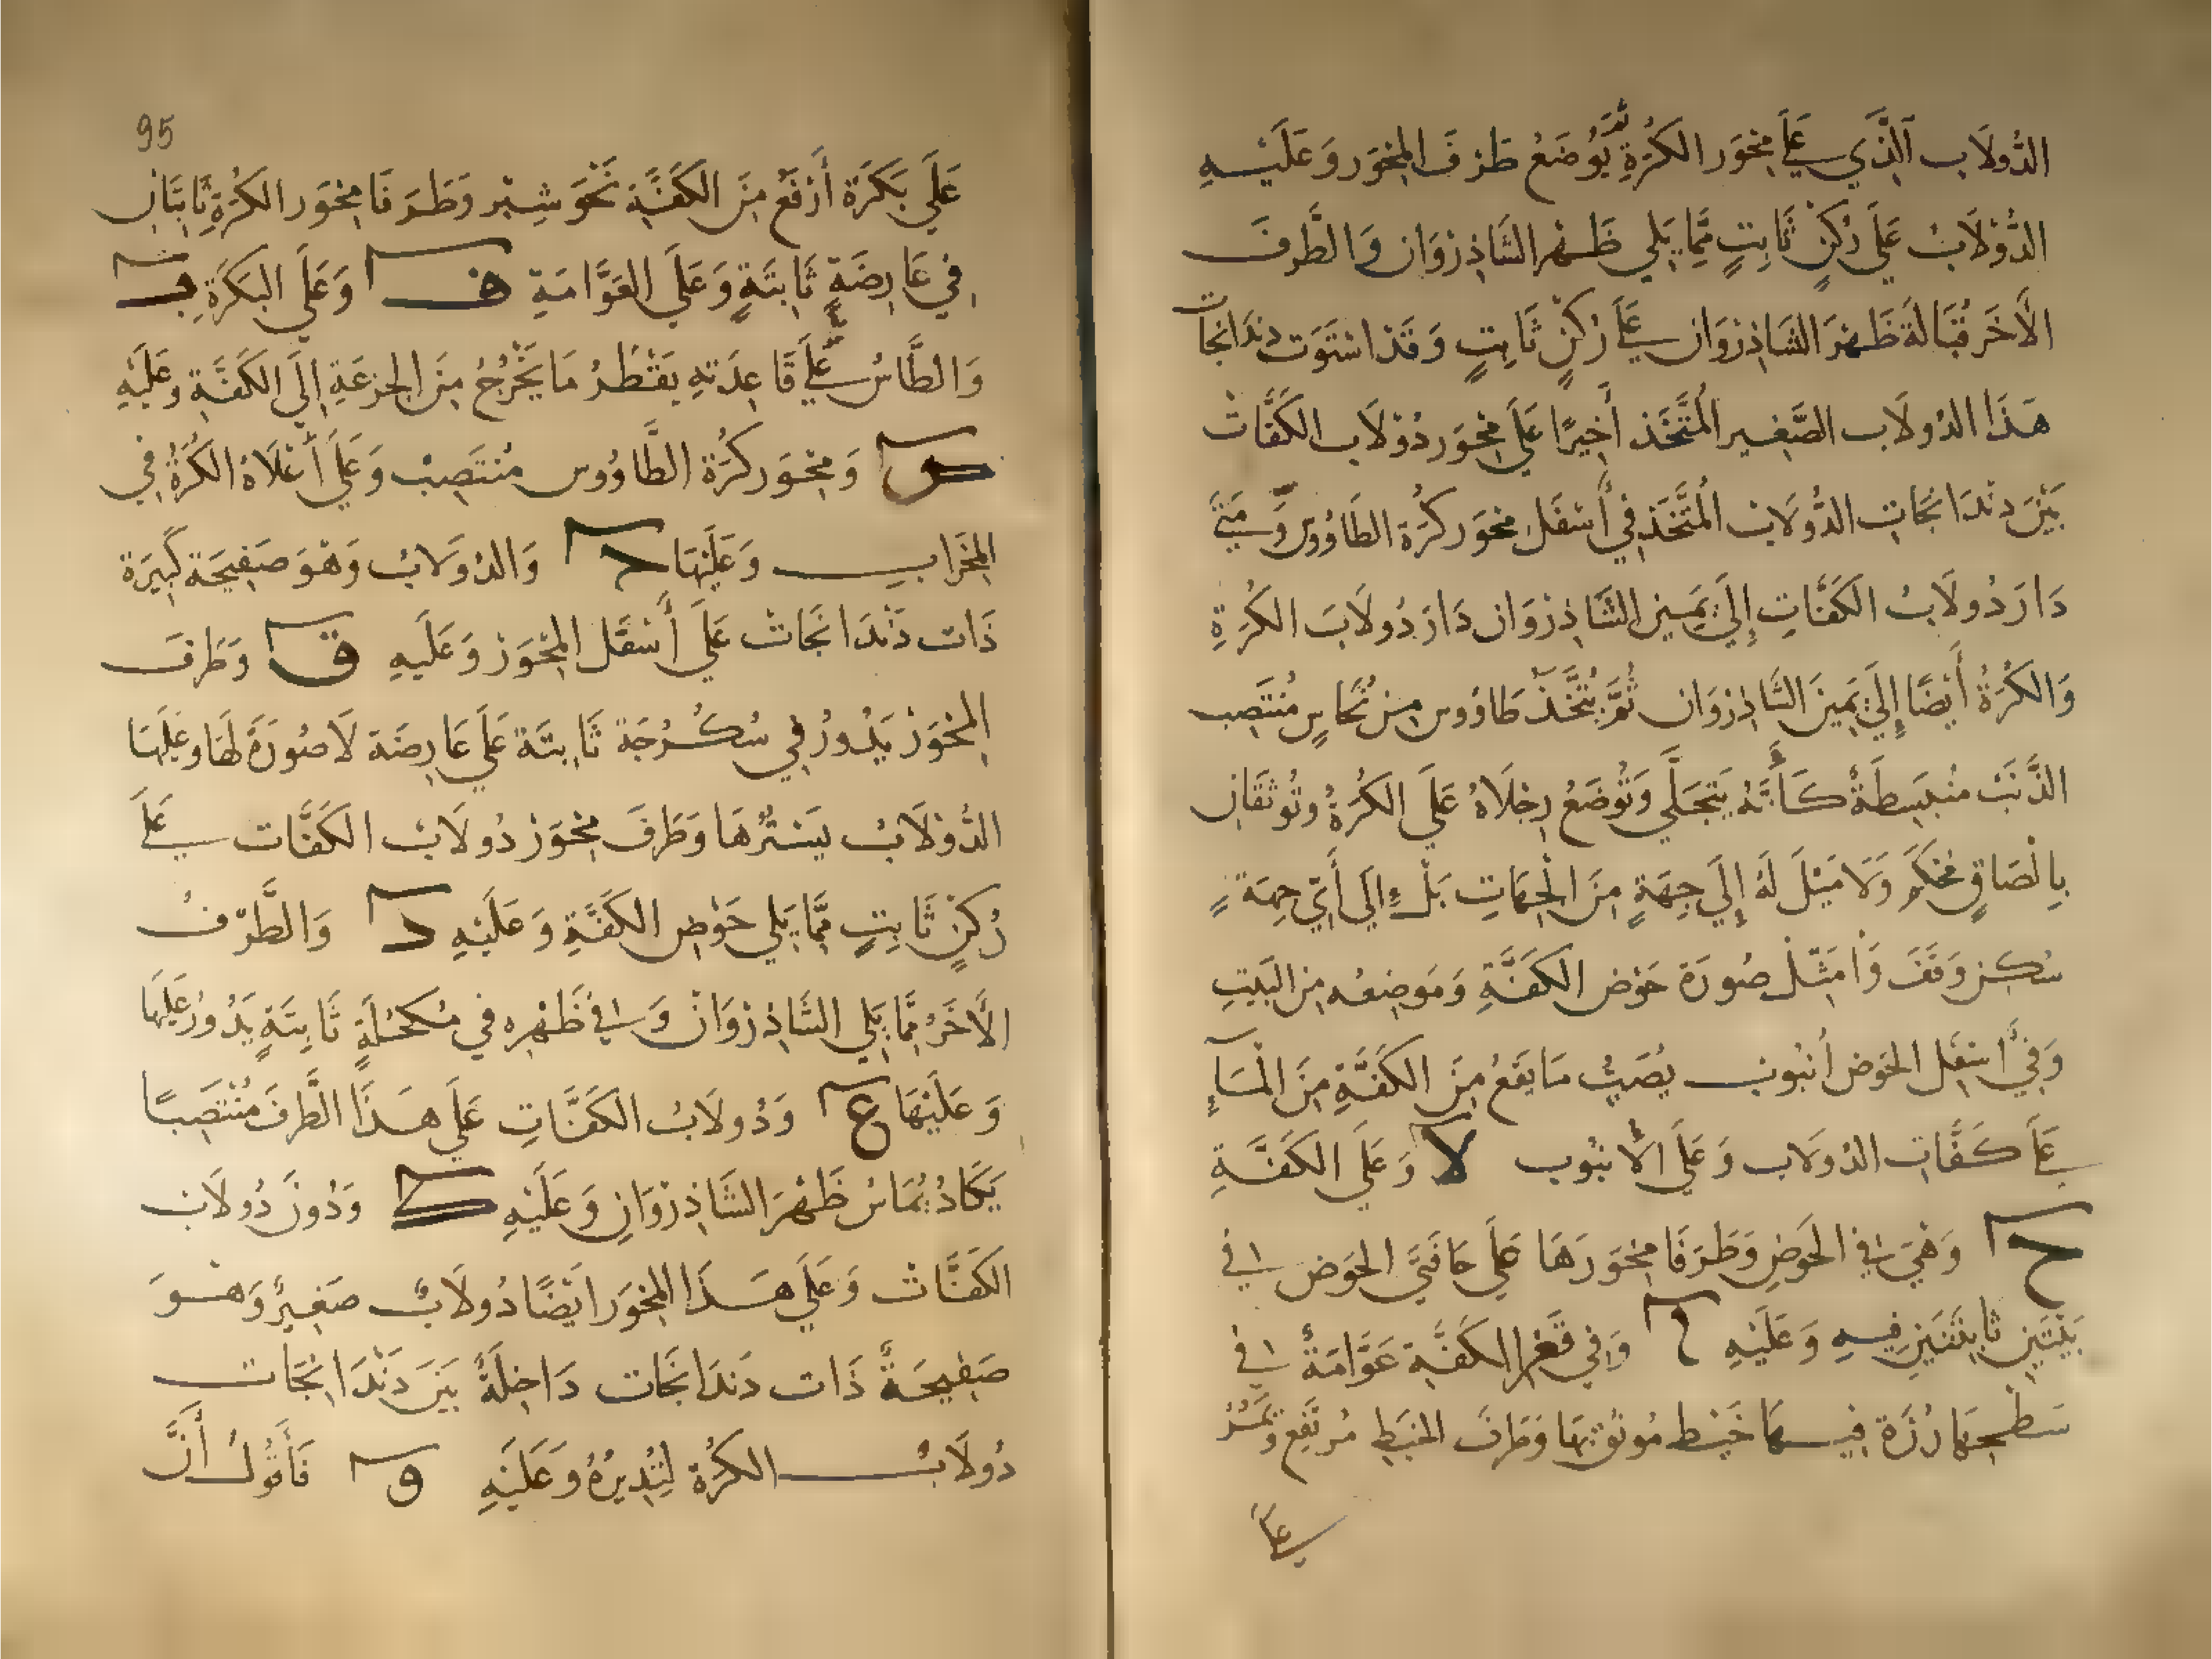 الدُّولَاب الَّذِي عَلَى مِحْوَر الكُرَةِ ثُمَّ يُوضَعُ طَرَف المِحْوَر وَعَلَيْهِ
الدُّوْلَابُ عَلَى رُكْنٍ ثَابِتٍ مِمَّا يَلِي ظَهْر الشَّاذِرْوَان وَالطَّرَف
الآخَر قُبَالَة ظَهْرَ الشَّاذِرْوَان عَلَى رُكْنٍ ثَابِتٍ وَقَدْ اسْتَوَت دَنْدَانجَات
هَذَا الدُولَاب الصَّغِير المُتَّخَذ أَخِيرًا عَلَى مِحْوَر دُوْلَاب الكَفَّات
بَيْنَ دَنْدَانجَاتِ الدُّولَاب المُتَّخَذِ فِي أَسْفَل مِحْوَر كُرَة الطَاوُوس وَمَتَى
دَارَ دُولَابُ الكَفَّاتِ إِلَى يَمِين الشَّاذِرْوَان دَارَ دُولَابَ الكُرَةِ
وَالكُرَةُ أَيْضًا إِلَى يَمِينَ الشَّاذِرْوَان ثُمَّ يُتَّخَذُ طَاوُوس مِنْ نُحَاسٍ مُنْتَصِب
الذَّنَبُ مُنْبَسِطَةٌ كَأَنَّهُ يَتَجَلَّى وَتُوضَعُ رِجْلَاهُ عَلَى الكُرَةُ وَتُوثَقَان
بِالْصَاقٍ مُحْكَمٍ وَلَا مَيْلَ لَهُ إِلَى جِهَةٍ مِنَ الْجِهَاتِ بَلْ إِلَى أَيِّ جِهَةٍ
سُكِن وَقَفَ وَأمَثِّلُ صُورَة حَوْض الكَفَّةِ وَمَوضِعُه مِن البَيْتِ
وَفِي أَسْفَل الحَوْض أُنْبُوب يُصَبُّ مَا يَقَعُ مِنَ الكَفَّةِ مِنَ المَاءِ
عَلَى كَفَّات الدُولَاب وَعَلَى الأنْبُوب لا وَعَلَى الكَفَّةِ
ح وَهِيَ فِي الحَوْضِ وَطَرَفَا مِحْوَرهَا عَلَى حَافَتَيْ الحَوْض فِي
بَيْتَيْنِ ثَابِتَيْنِ فِيهِ وَعَلَيْهِ م وَفِي قَعْرِ الكَفَّةِ عَوَّامَةٌ فِي
سَطْحِهَا رُزَة فِيهَا خَيْط مُوثَق بِهَا وَطَرَفُ الخَيْطِ مُرْتَفِع وَيَمُرُّ
عَلَى
95
عَلَى بَكَرَة أَرْفَع مِنَ الكَفَّةِ نَحْوَ شِبْر وَطَرَفَا مِحْوَر الكُرَةِ ثَابِتَان
فِي عَارِضَةٍ ثَابِتَةٍ وَعَلَى العَوَّامَةِ ف وَعَلَى البَكَرَةِ ب
وَالطَّاسُ عَلَى قَاعِدَتِهِ يَقْطُرُ مَا يَخْرُجُ مِنَ الجَزعَةِ إِلَى الكَفَّةِ وعَلَيْهِ
س وَمِحْوَر كُرَة الطَّاوُوس مُنْتَصِبٌ وَعَلَى أَعْلَاهُ الكُرَةُ فِي
المِحْرَاب وَعَلَيْهَا ح وَالدُولَابُ وَهْوَ صَفِيحَة كَبِيرَة
ذَات دَنْدَانجَات عَلَى أَسْفَل المِحْوَر وَعَلَيهِ ق وَطَرَف
المِحْوَر يَدُورُ فِي سُكُرُجَة ثَابِتَة عَلَى عَارِضَة لَا صُورَةَ لَهَا وَعَلَيْهَا
الدُّوْلَابُ يَسْتُرُهَا وَطَرَف مِحْوَر دُولَاب الكَفَّات عَلَى
رُكْنٍ ثَابِتٍ مِمَّا يَلِي حَوْض الكَفَّةِ وَعَلَيْهِ د وَالطَّرَفُ
الآخَرُ مِمَّا يَلِي الشَّاذِرْوَان وَفِي ظَهْرِهِ فِي مُكْحُلَةٍ ثَابِتَةٍ يَدُورُ عَلَيْهَا
وَعَلَيْهَا ع وَدُولَابُ الكَفَّاتِ عَلَى هَذَا الطَّرَف مُنْتَصِبًا
يَكَادُ يُمَاسُّ ظَهْرَ الشَّاذِرْوَانِ وَعَلَيْهِ ك وَدُونَ دُولَاب
الكَفَّاتْ وَعَلَى هَذَا المِحْوَر ايْضًا دُولَابٌ صَغِيرٌ وَهْوَ
صَفِيحَةٌ ذَات دَنَدَانجَات دَاخِلَةٌ بَيْنَ دَنْدَانجَات
دُولَاب الكُرَة لِتُدِيرُهُ وَعَلَيْهِ و فَأَقُولُ أَنَّ